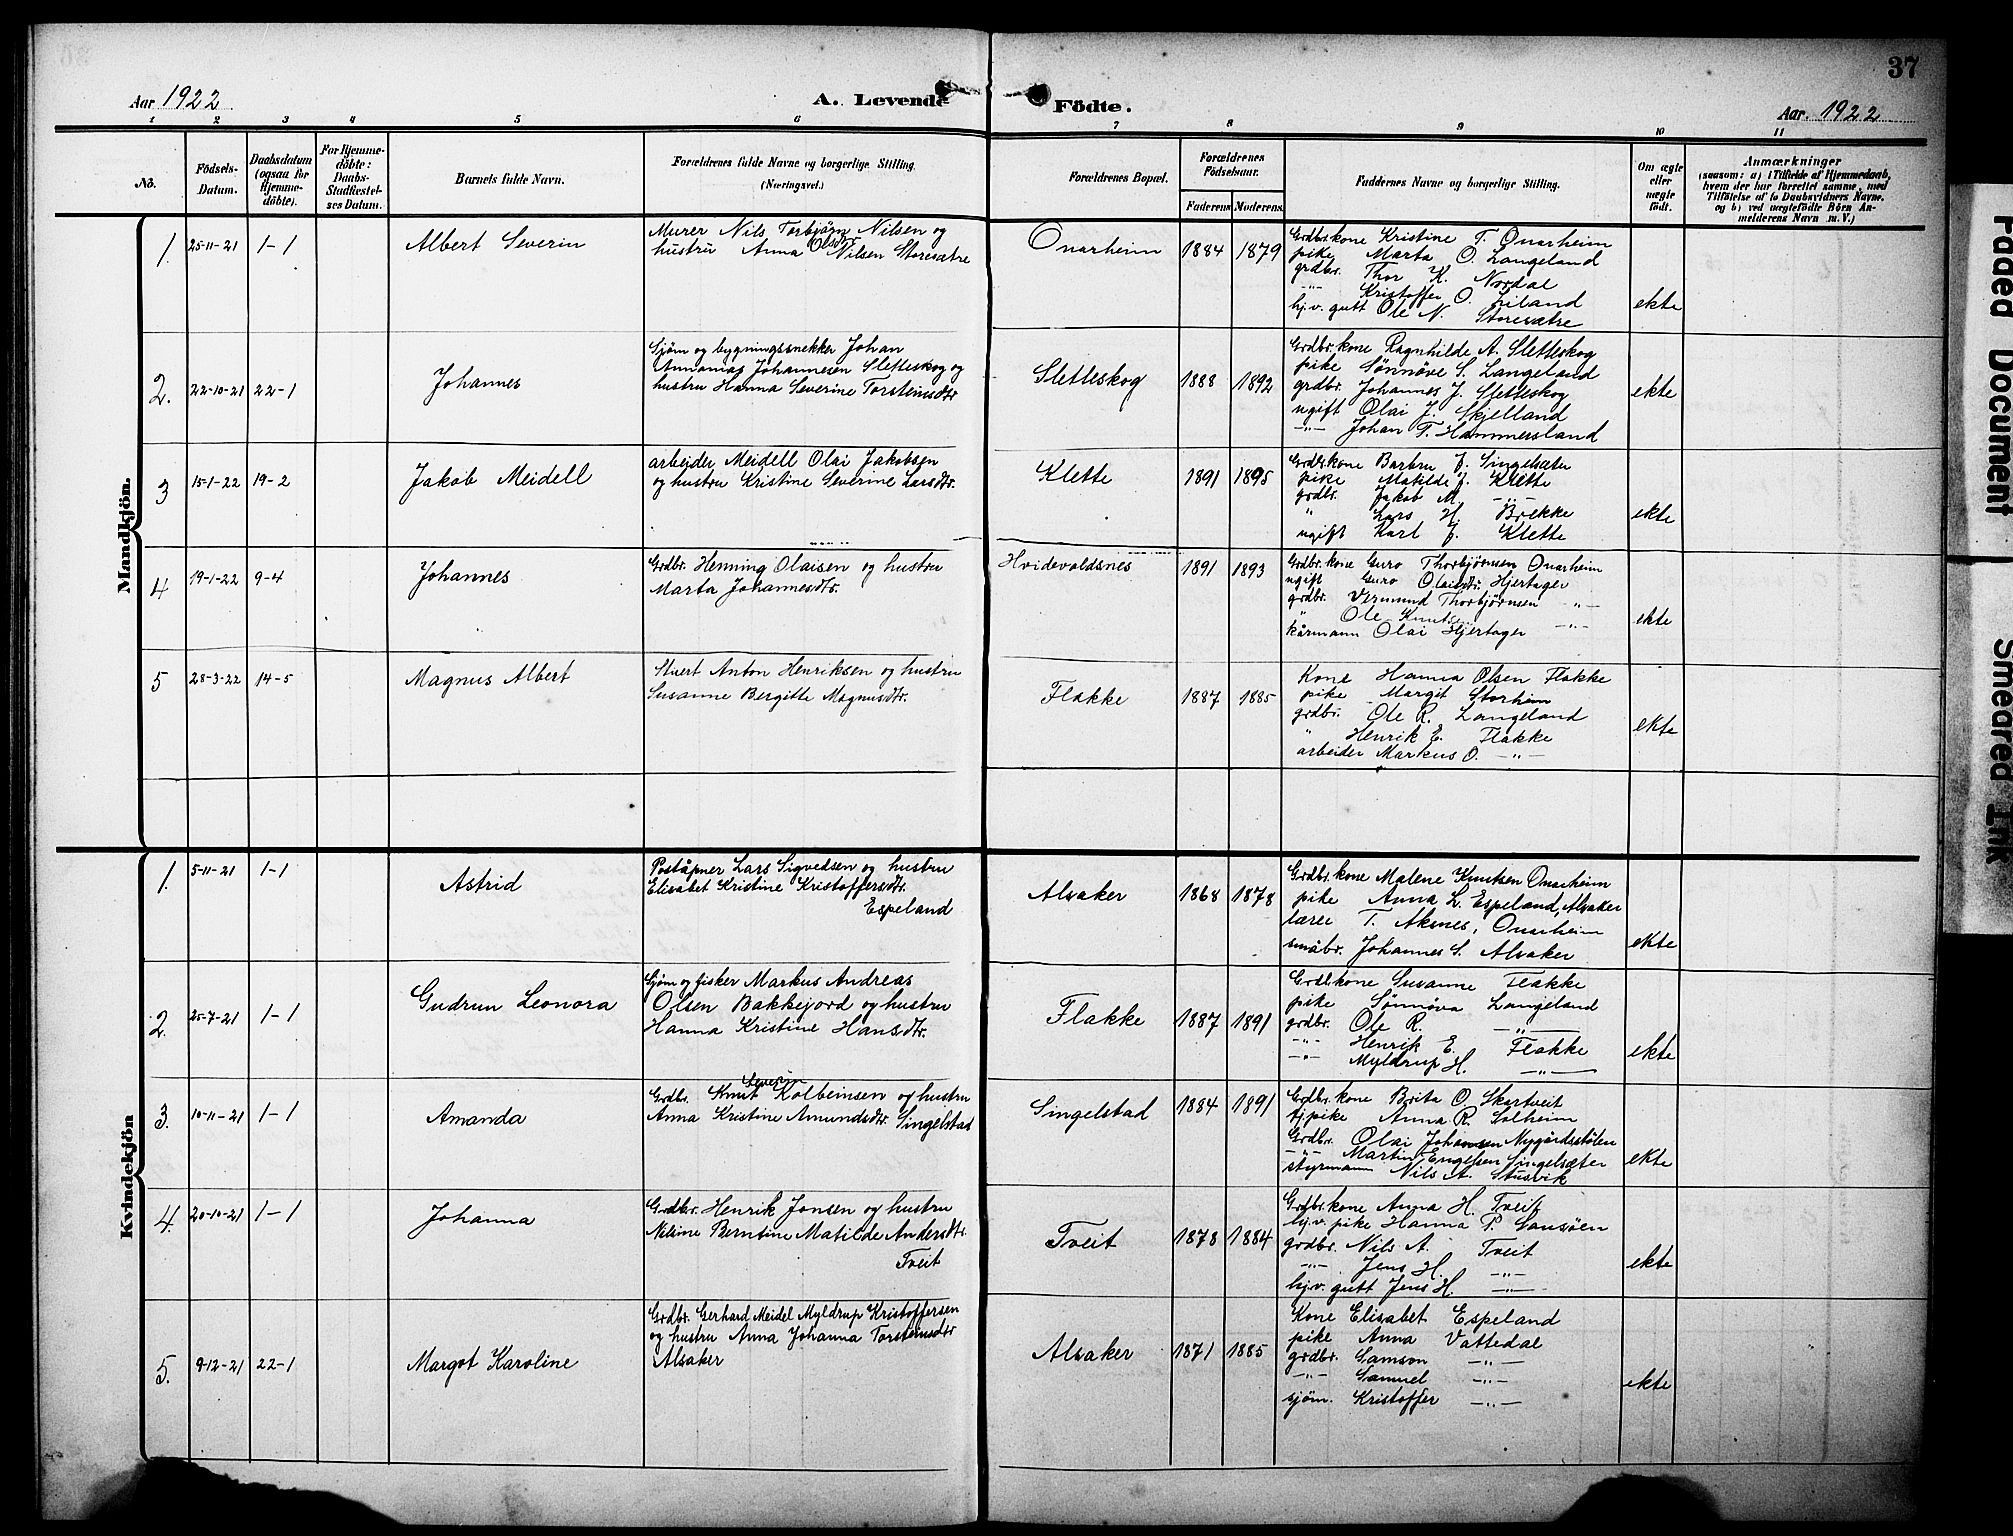 37
Aar 1922
A. Levende Födte.
Aar. 1922
1 2 3 4 5 6 7 8 9 10 11
No.
Födsels-Datum.
Daabsdatum (ogsaa for Hjemme-döbte).
For Hjemme-döbte: Daabs-Stadfæstel-ses Datum.
Barnets fulde Navn.
Forældrenes fulde Navne og borgerlige Stilling. (Næringsvei.)
Forældrenes Bopæl.
Forældrenes Födselsaar.
Faderens Moderens
Faddernes Navne og borgerlige Stilling.
Om ægte eller uægte födt.
Anmærkninger
(saasom: a) i Tilfælde af Hjemmedaab, hvem der har forrettet samme, med Tilföielse af to Daabsvidners Navne. og b) ved uægtefödte Börn An-melderens Navn m. V.)
Mandkjön.
1. 25-11-21 1-1 Albert Severin
Murer Nils Torbjørn Nilsen og
hustru Anna Olsdtr Nilsen Storesætre
Onarheim 1884 1879
Grdbr.kone Kristine T. Onarheim
pike Marta O. Langeland
grdbr. Thor K. Nordal
-"- Kristoffer O. Liland
hj.v. gutt Ole N. Storesætre
ekte
2. 22-10-21 22-1 Johannes
Sjøm og bygningssnekker Johan
Annanias Johannesen Sletteskog og
hustru Hanna Severine Torsteinsdtr
Sletteskog 1888 1892
Grdbr.kone Ragnhilde A. Sletteskog
pike Sønnøve S. Langeland
grdbr. Johannes J. Sletteskog
ugift Olai J. Skjelland
-"- Johan T. Hammersland
ekte
3 15-1-22 19-2 Jakob Meidell
arbeider Meidell Olai Jakobsen
og hustru Kristine Severine Larsdtr.
Klette 1891 1895
Grdbr.kone Barbru J. Singelsæter
pike Matilde J. Klette
grdbr. Jakob M. -"-
" Lars H. Brekke
ugift Karl J. Klette
ekte
4 19-1-22 9-4 Johannes
Grdbr. Henning Olaisen og hustru
Marta Johannesdtr.
Hvidevoldsnes 1891 1893
Grdbr.kone Guro Thorbjørnsen Onarheim
ugift Guro Olaisdtr. Hjertager
grdbr. Vermund Thorbjørnsen -"-
" Ole Knutsen
kårmann Olai Hjertager -"-
ekte
5 28-3-22 14-5 Magnus Albert
Stuert Anton Henriksen og hustru
Susanne Bergitte Magnusdtr.
Flakke 1887 1885
Kone Hanna Olsen Flakke
pike Margit Storheim
grdbr. Ole R. Langeland
" Henrik E. Flakke
arbeider Markus O. -"-
ekte
Kvindekjön
1. 5-11-21 1-1 Astrid
Poståpner Lars Sigvedsen og hustru
Elisabet Kristine Kristoffersdtr.
Espeland
Alsaker 1868 1878
Grdbr.kone Malene Knutsen Onarheim
pike Anna L. Espeland, Alsaker
lærer T. Aksnes, Onarheim
småbr. Johannes S. Alsaker
ekte
2. 25-7-21 1-1 Gudrun Leonora
Sjøm og fisker Markus Andreas
Olsen Bakkejord og hustru
Hanna Kristine Hansdtr.
Flakke 1887 1891
Grdbr.kone Susanne Flakke
pike Sønnøva Langeland
grdbr. Ole R. -"-
-"- Henrik E. Flakke
-"- Myldrup H. -"-
ekte
3. 10-11-21 1-1 Amanda
Severin
Grdbr. Knut Kolbeinsen og hustru
Anna Kristine Amundsdtr. Singelstad
Singelstad 1884 1891
Grdbr.kone Brita O. Skartveit
tj.pike Anna R. Solheim
Grdbr. Olai Johansen Nygårdsstølen
-"- Martin Engelsen Singelsæter
styrmann Nils A. Stusvik
ekte
4. 20-10-21 1-1 Johanna
Grdbr. Henrik Jensen og hustru
Nilsine Berntine Matilde Andersdtr.
Tveit
Tveit 1878 1884
Grdbr.kone Anna H. Tveit
hj.v. pike Hanna P. Gansøen
grdbr. Nils A. Tveit
-"- Jens H. -"-
hj.v. gutt Jens H. -"-
ekte
5. 9-12-21 22-1 Margot Karoline
Grdbr. Gerhard Meidel Myldrup Kristoffersen
og hustru Anna Johanna Torsteinsdtr
Alsaker
Alsaker 1871 1885
Kone Elisabet Espeland
pike Anna Vattedal
grdbr. Samson -"-
-"- Samuel -"-
sjøm. Kristoffer -"-
ekte
Faded Document
Smeared Ink